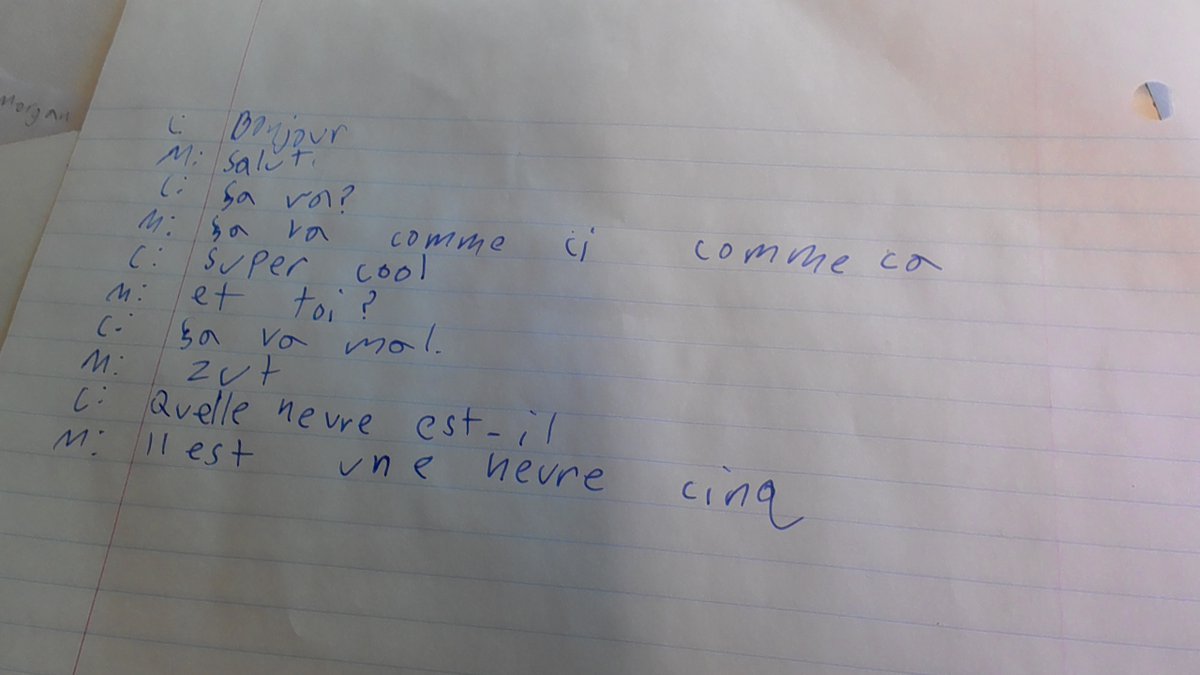 Morgan
C: Bonjour
M: Salut.
C: Şa va?
M: Şa va comme ci comme ca
C: super cool
M: et toi?
C: Şa va mal.
M: zut
C: Quelle heure est-il
M: Il est une heure cinq